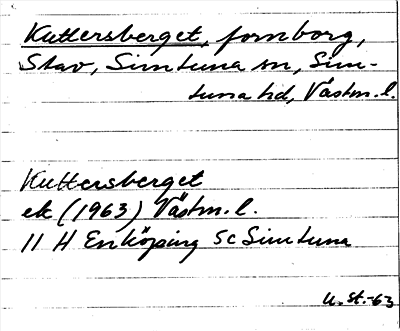 Kuttersberget, fornborg,
Stav, Simtuna sn, Sim-
tuna hd, Västm. l.
Kuttersberget
ek (1963) Västm. l.
11 H Enköping SC Simtuna
U. St. -63